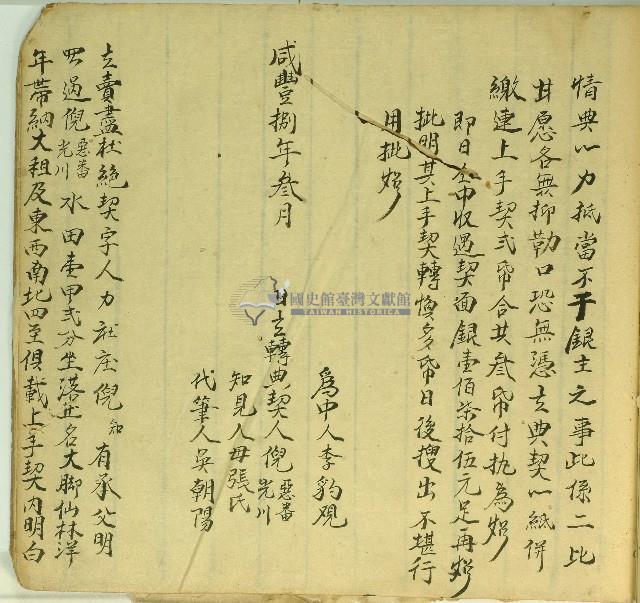 情典以力抵當不干銀主之事此係二比
甘愿各無抑勒口恐無憑立典契以紙併
繳連上手契弍帋合共叁帋付执為炤
即日仝中收過契面銀壹佰柒拾伍元足再炤
批明其上手契轉恢多帋日後搜出不堪行
用批炤
咸豐捌年叁月
為中人李豹观
日立轉典契人倪惡番光川
知見人母張氏
代筆人吳朝陽
立賣盡杜絕契字人力社庄倪知有承父明
買過倪惡番光川水田壹甲弍分坐落土名大脚仙林洋
年帶納大租及東西南北四至俱載上手契內明白
國史館臺灣文獻館
TAIWAN HISTORICA